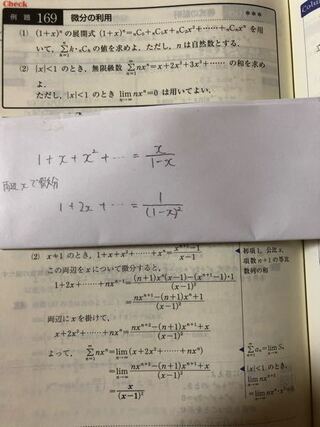 Check
例題 169 微分の利用
(1) (1+x)ⁿ の展開式 (1+x)ⁿ=ₙC₀+ₙC₁x+ₙC₂x²+……+ₙCₙxⁿ を用
いて, の値を求めよ. ただし, n は自然数とする.
(2) |x|<1 のとき, 無限級数 ∑_{n=1}^{∞} nxⁿ=x+2x²+3x³+…… の和を求め
よ.
ただし, |x|<1 のとき lim_{n→∞} nxⁿ=0 は用いてよい.
1+x+x²+⋯ = x/(1-x)
両辺xで微分
1+2x+⋯ = 1/(1-x)²
(2) x≠1 のとき, 1+x+x²+……+xⁿ=(xⁿ⁺¹-1)/(x-1)
この両辺を x について微分すると,
1+2x+……+nxⁿ⁻¹=((n+1)xⁿ(x-1)-(xⁿ⁺¹-1)・1)/(x-1)²
=(nxⁿ⁺¹-(n+1)xⁿ+1)/(x-1)²
両辺に x を掛けて,
x+2x²+……+nxⁿ=(nxⁿ⁺²-(n+1)xⁿ⁺¹+x)/(x-1)²
よって, ∑_{n=1}^{∞} nxⁿ=lim_{n→∞}(x+2x²+……+nxⁿ)
=lim_{n→∞} (nxⁿ⁺²-(n+1)xⁿ⁺¹+x)/(x-1)²
=x/(x-1)²
初項1, 公比x,
項数n+1の等比
数列の和
∑aₙ=lim Sₙ
|x|<1 のとき,
lim nxⁿ⁺²
=lim nxⁿ・x²=0